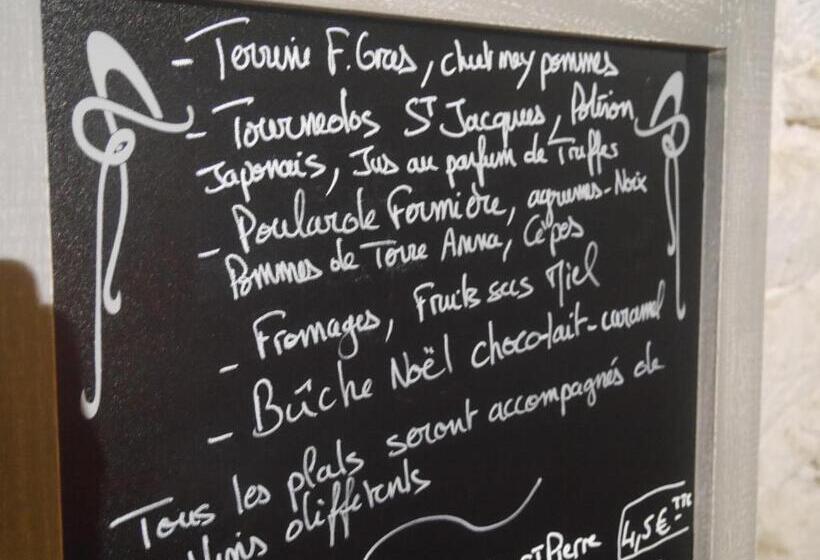 - Terrine F. Gras, chutney pommes
- Tournedos St Jacques, Potiron
Japonais, Jus au parfum de Truffes
- Poularde Fermière, agrumes-Noix
Pommes de Terre Anna, Cèpes
- Fromages, Fruits secs Miel
- Bûche Noël choco-lait-caramel
Tous les plats seront accompagnés de
Vins différents
Pierre
4,5€ TTC